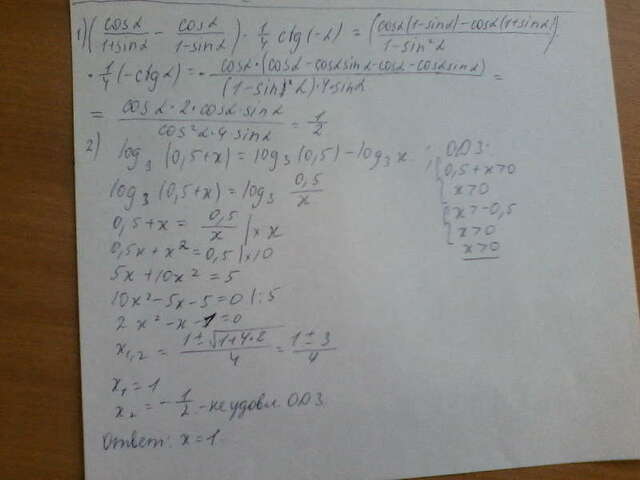 1) (cosα/(1+sinα) - cosα/(1-sinα)) · 1/4 ctg(-α) = (cosα(1-sinα) - cosα(1+sinα))/(1-sin²α)
· 1/4 (-ctgα) = - cosα·(cosα - cosαsinα - cosα - cosαsinα)/((1-sin²α)·4·sinα) =
= cosα·2·cosα·sinα/(cos²α·4sinα) = 1/2
2) log₃(0,5+x) = log₃(0,5) - log₃x ;
log₃(0,5+x) = log₃ 0,5/x
0,5+x = 0,5/x |×x
0,5x + x² = 0,5 |×10
5x + 10x² = 5
10x² - 5x - 5 = 0 |:5
2x² - x - 1 = 0
x₁,₂ = (1±√(1+4·2))/4 = (1±3)/4
x₁ = 1
x₂ = -1/2 - не удовл ОДЗ.
Ответ: x = 1.
ОДЗ:
{0,5+x>0
x>0
{x>-0,5
x>0
x>0